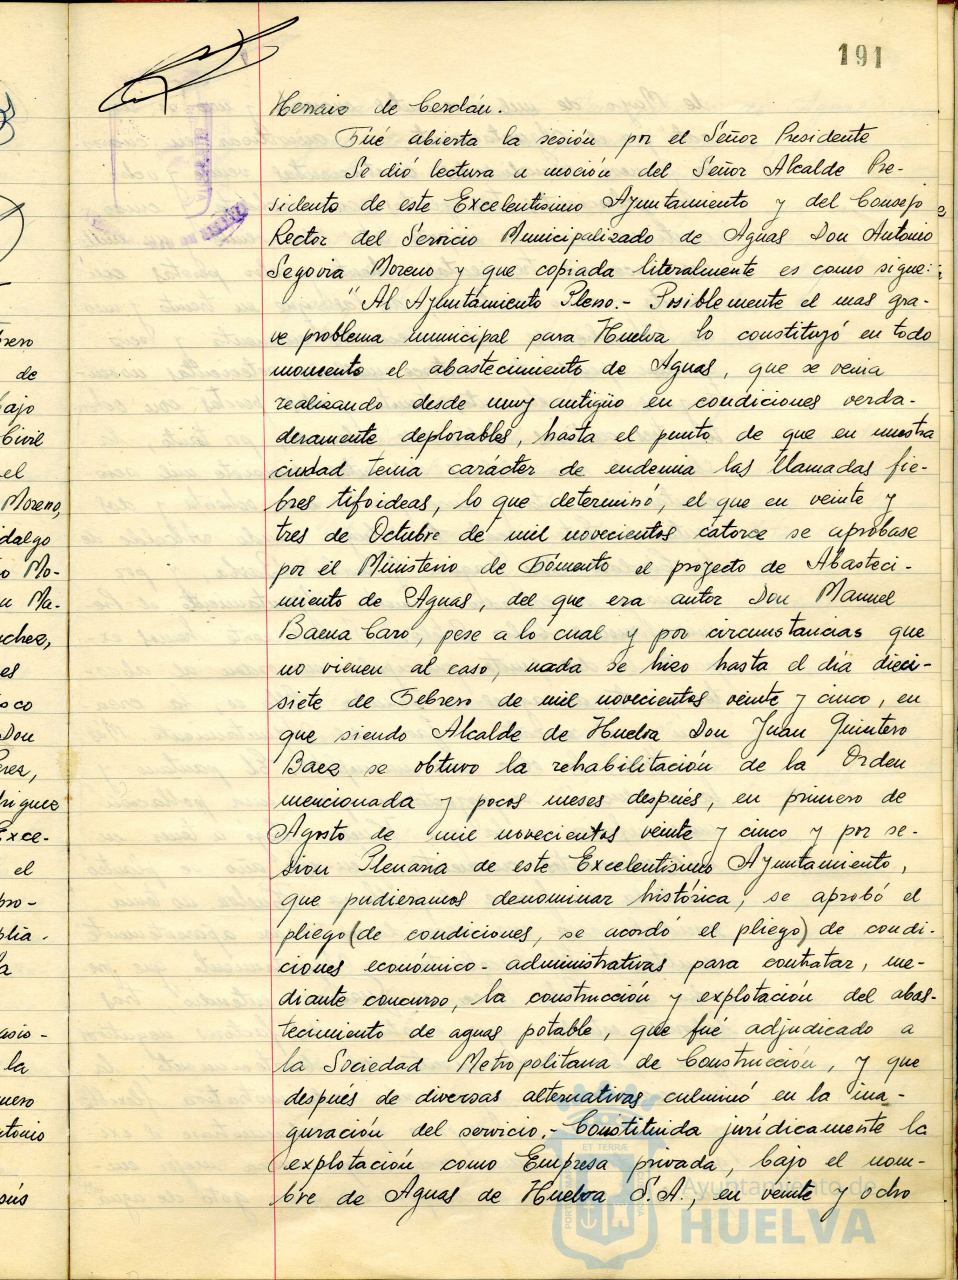 191
Herraiz de Cerdán.
Fué abierta la sesión por el Señor Presidente
Se dió lectura a moción del Señor Alcalde Pre-
sidente de este Excelentisimo Ayuntamiento y del Consejo
Rector del Servicio Municipalizado de Aguas Don Antonio
Segovia Moreno y que copiada literalmente es como sigue:
" Al Ayuntamiento Pleno.- Posiblemente el mas gra-
ve problema municipal para Huelva lo constituyó en todo
momento el abastecimiento de Aguas, que se venia
realizando desde muy antigüo en condiciones verda-
deramente deplorables, hasta el punto de que en nuestra
ciudad tenia carácter de endemia las llamadas fie-
bres tifoideas, lo que determinó, el que en veinte y
tres de Octubre de mil novecientos catorce se aprobase
por el Ministerio de Fomento el proyecto de Abasteci-
miento de Aguas, del que era autor Don Manuel
Baena Caro, pese a lo cual y por circunstancias que
no vienen al caso, nada se hizo hasta el día dieci-
siete de Febrero de mil novecientos veinte y cinco, en
que siendo Alcalde de Huelva Don Juan Quintero
Baez se obtuvo la rehabilitación de la Orden
mencionada y pocos meses después, en primero de
Agosto de mil novecientos veinte y cinco y por se-
sion Plenaria de este Excelentisimo Ayuntamiento,
que pudieramos denominar histórica, se aprobó el
pliego (de condiciones, se acordó el pliego) de condi-
ciones económico-administrativas para contratar, me-
diante concurso, la construcción y explotación del abas-
tecimiento de aguas potable, que fué adjudicado a
la Sociedad Metropolitana de Construcción, y que
después de diversas alternativas culminó en la ina-
guración del servicio.- Constituida jurídicamente la
explotación como Empresa privada, bajo el nom-
bre de Aguas de Huelva S.A., en veinte y ocho
Ayuntamiento de
HUELVA